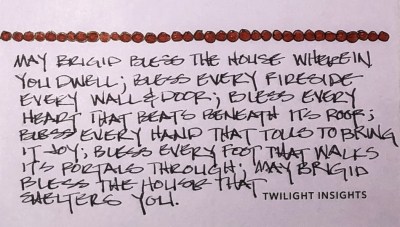 MAY BRIGID BLESS THE HOUSE WHEREIN
YOU DWELL; BLESS EVERY FIRESIDE
EVERY WALL & DOOR; BLESS EVERY
HEART THAT BEATS BENEATH ITS ROOF;
BLESS EVERY HAND THAT TOILS TO BRING
IT JOY; BLESS EVERY FOOT THAT WALKS
ITS PORTALS THROUGH; MAY BRIGID
BLESS THE HOUSE THAT
SHELTERS YOU.
TWILIGHT INSIGHTS